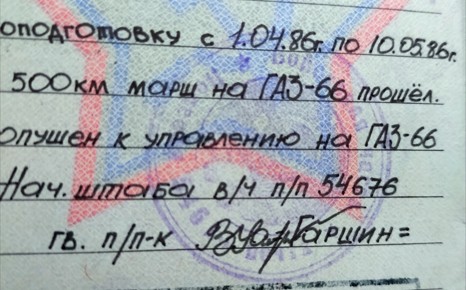 оподготовку с 1.04.86г. по 10.05.86г.
500км марш на ГАЗ-66 прошёл.
опущен к управлению на ГАЗ-66
Нач. штаба в/ч п/п 54676
гв. п/п-к Гаршин=